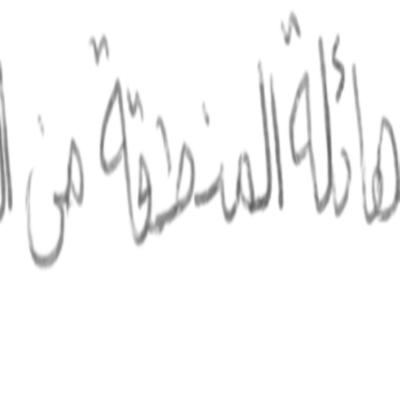 هائلة المنطقة من